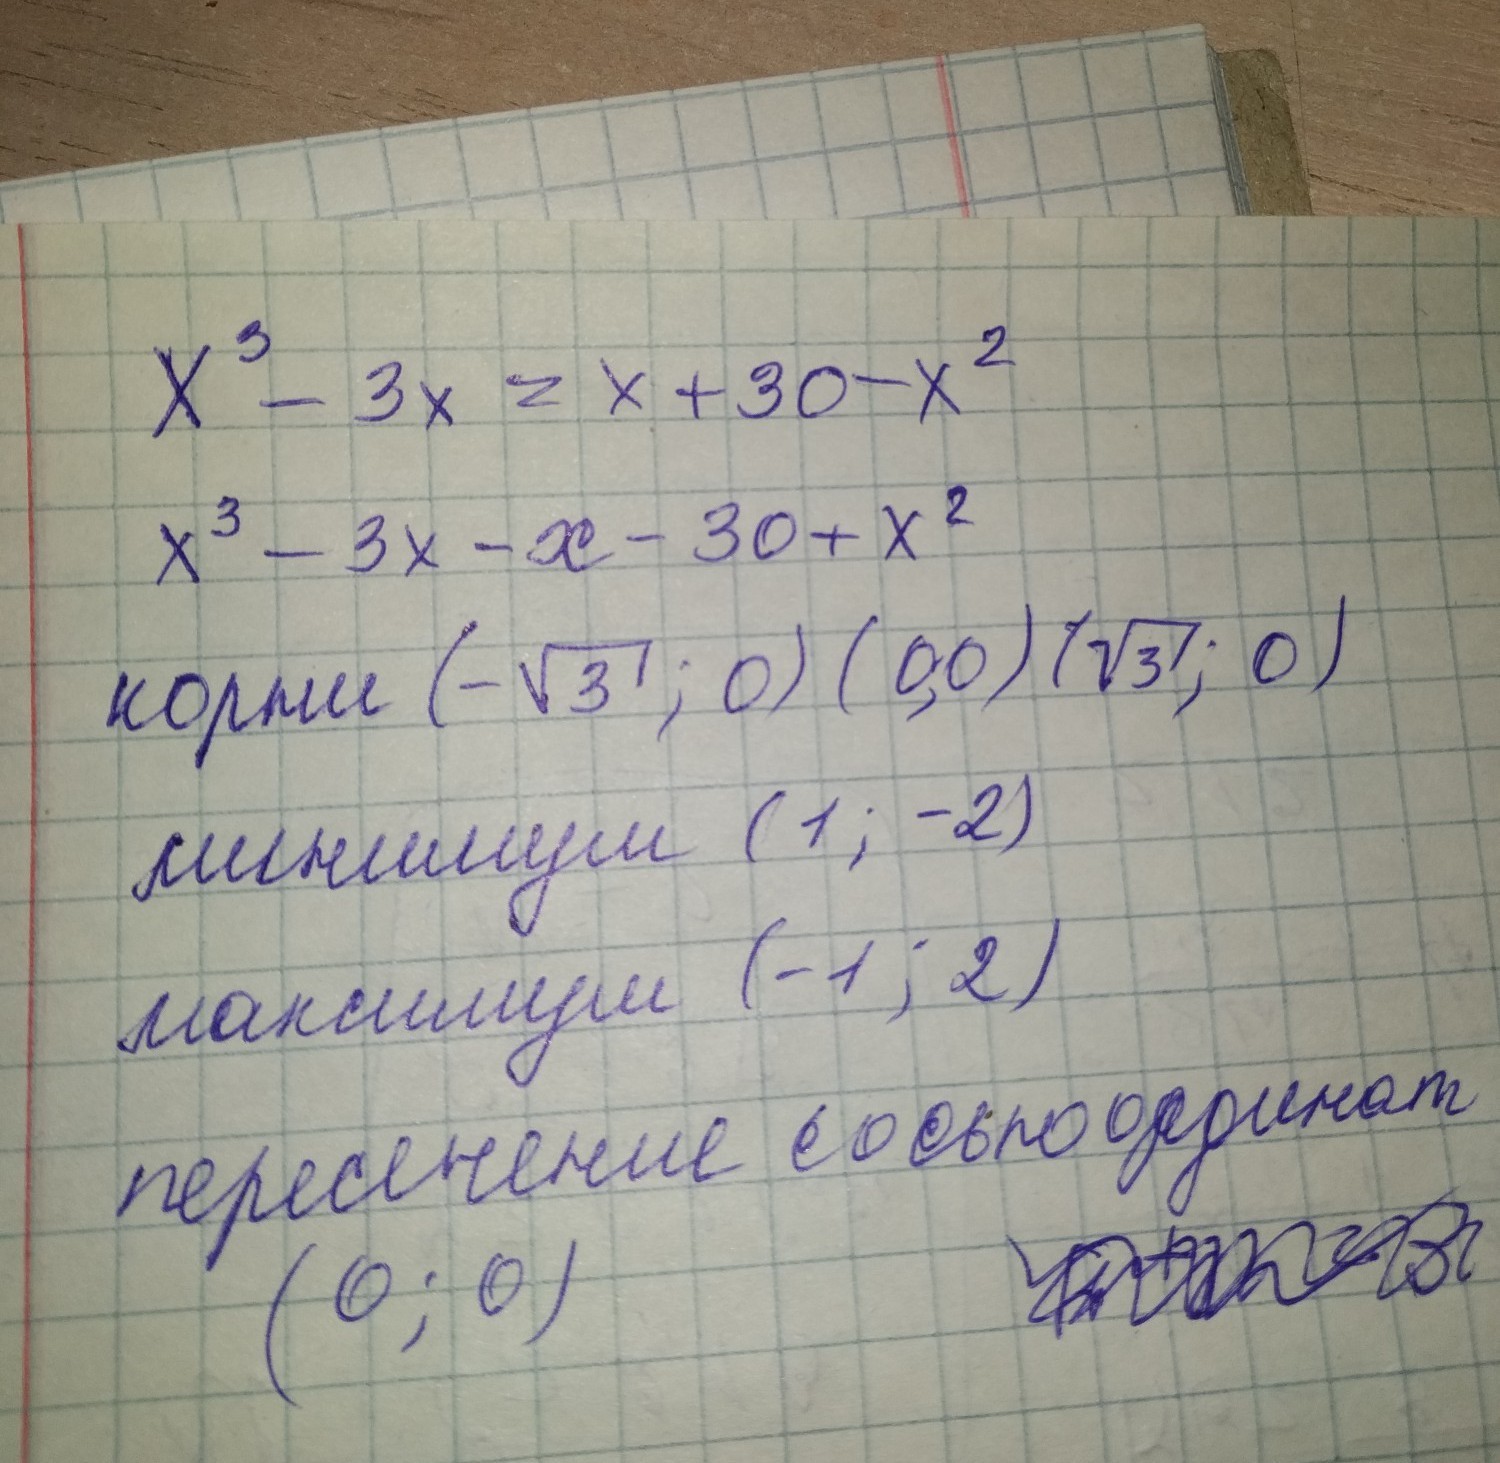 x³ - 3x = x + 30 - x²
x³ - 3x - x - 30 + x²
корни (-√3; 0) (0;0) (√3; 0)
минимум (1; -2)
максимум (-1; 2)
пересечение с осью ординат
(0; 0)